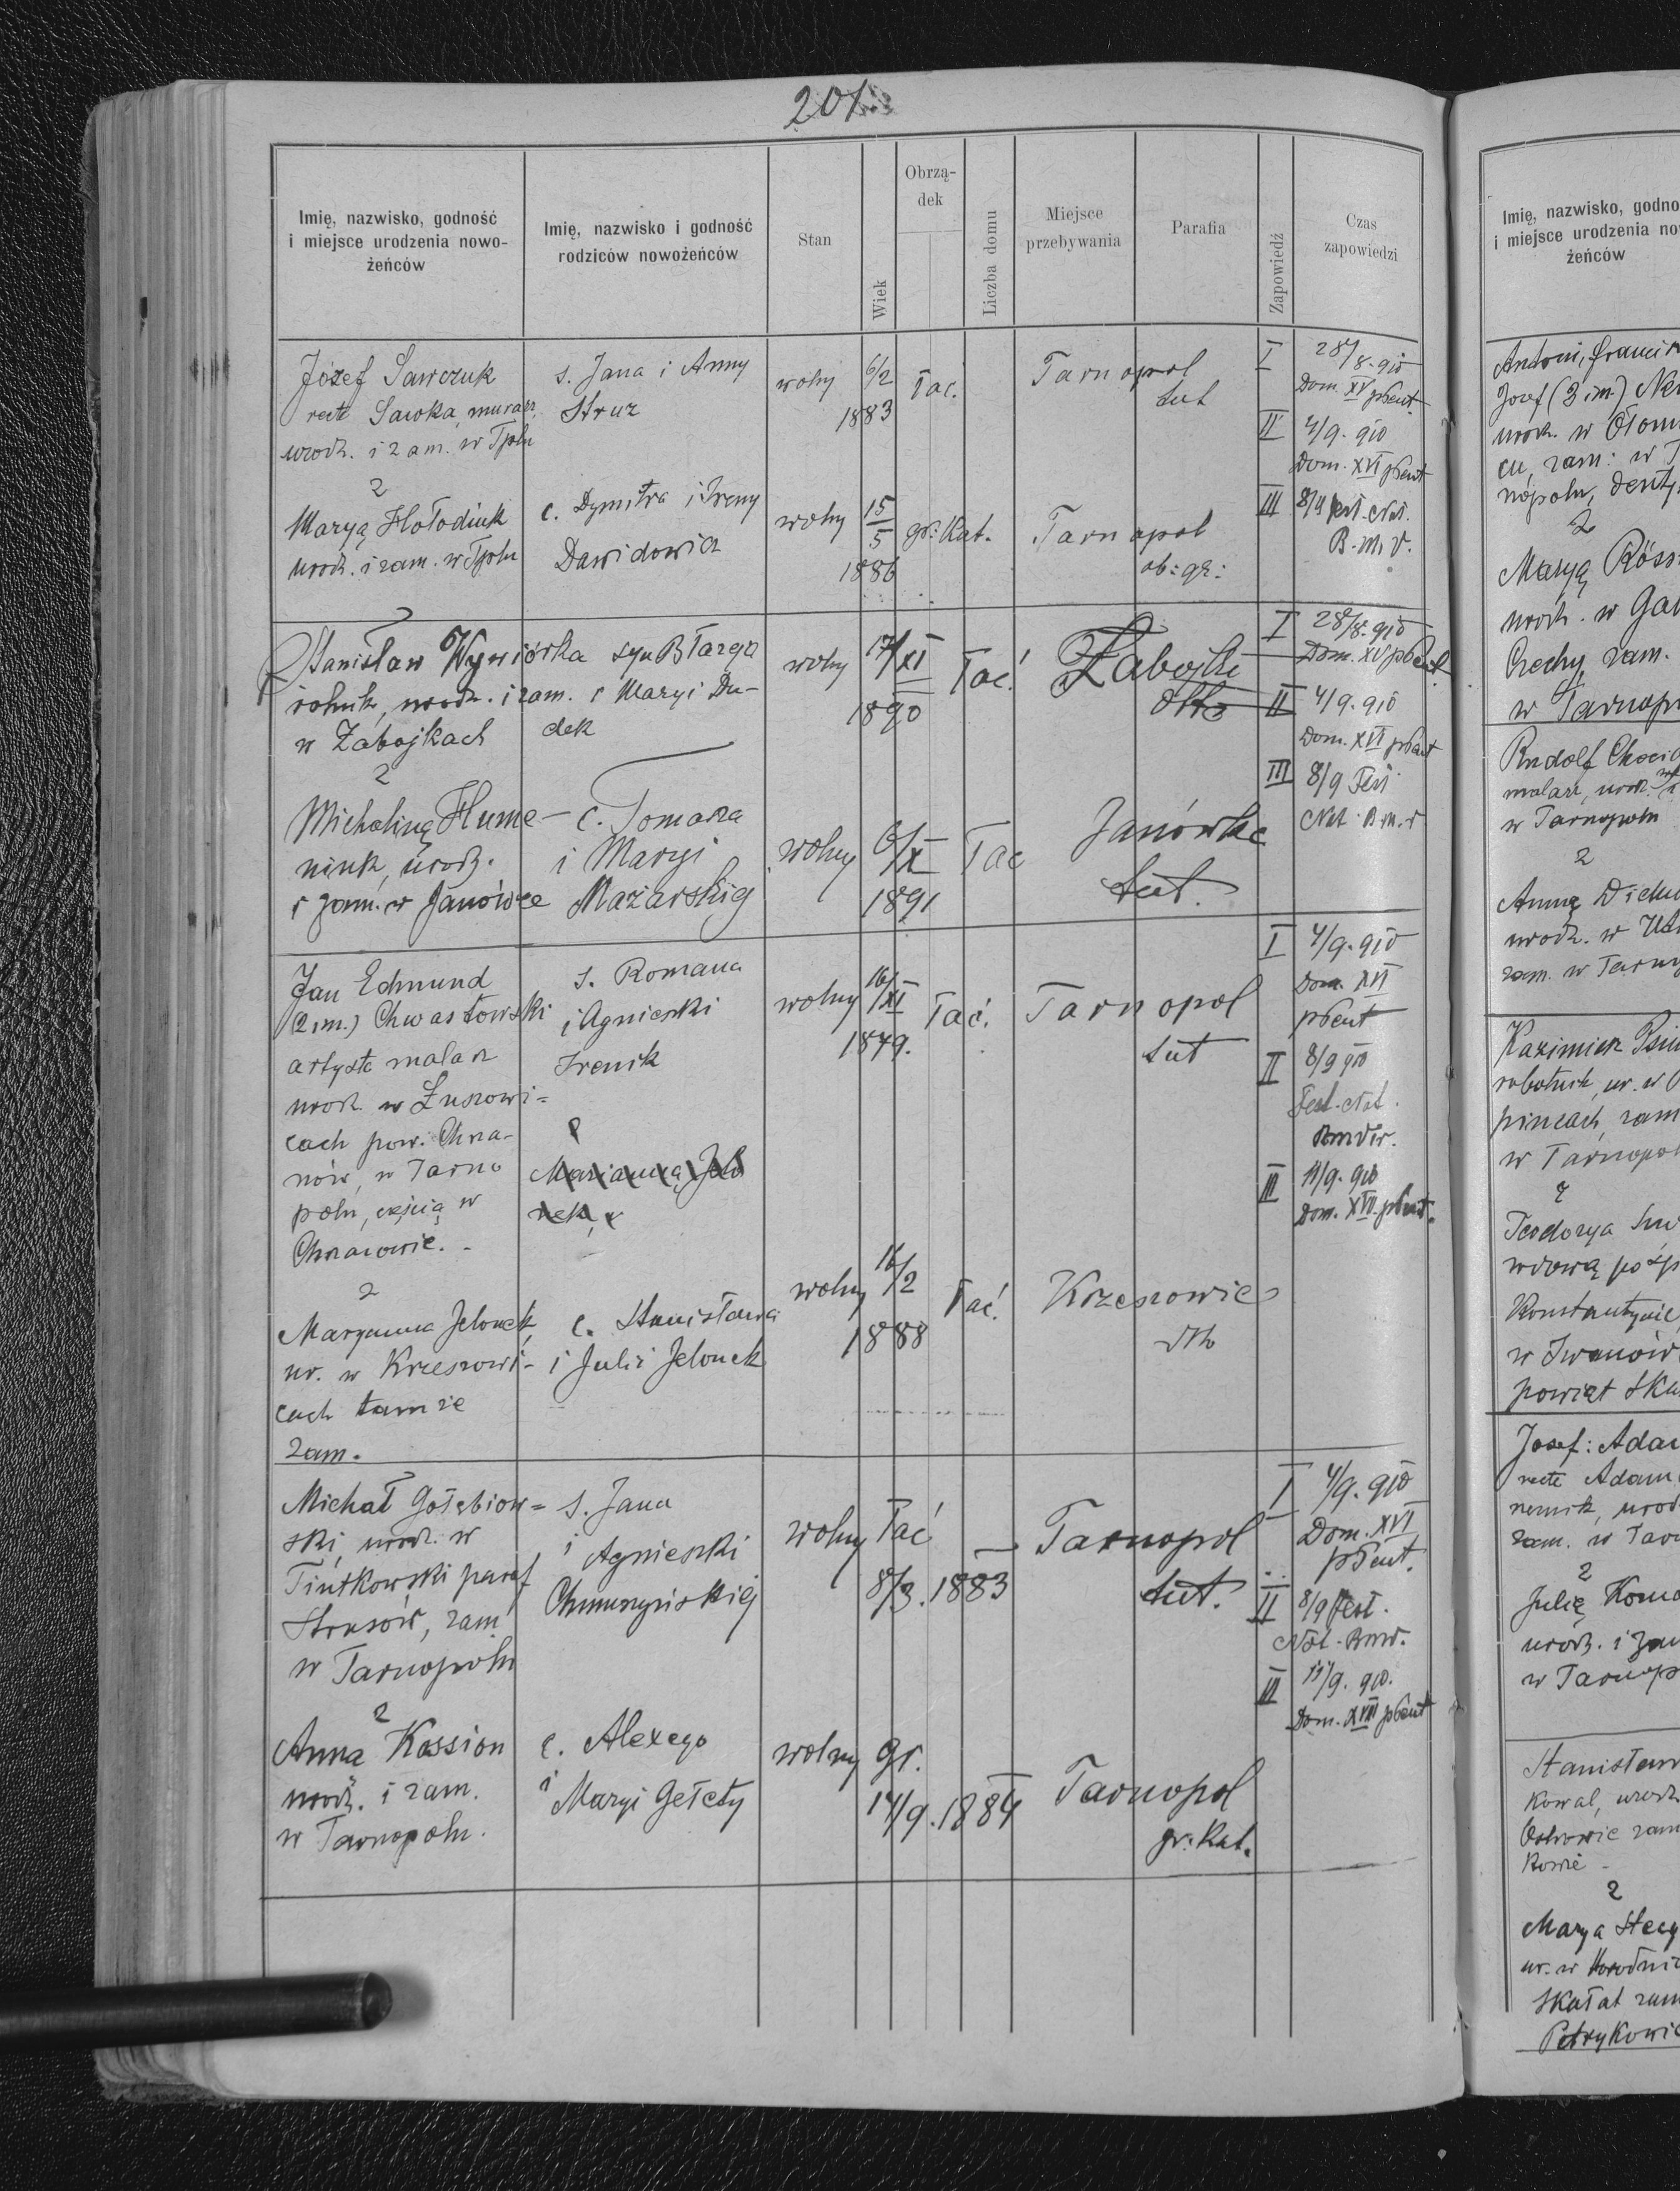 201.
Imię, nazwisko, godność
i miejsce urodzenia nowo-
żeńców
Imię, nazwisko i godność
rodziców nowożeńców
Stan
Wiek
Obrzą-
dek
Liczba domu
Miejsce
przebywania
Parafia
Zapowiedź
Czas
zapowiedzi
Józef Sawczuk
recte Sawka, murarz,
urodz. i zam. w Tplu
s. Jana i Anny
Struz
wolny
6/2
1883
łac.
Tarnopol
tut
I 28/8. 910
Dom. XV p Pent.
II 4/9. 910
Dom. XVI p Pent
III 8/9 Fest. Nat.
B. M. V.
z
Maryą Hołodiuk
urodz. i zam. w Tplu
c. Dymitra i Ireny
Dawidowicz
wolny
15
5
1886
gr: kat.
Tarnopol
ob: gr:
Stanisław Wywiórka
rolnik, urodz. i zam.
w Zabojkach
syn Błażeja
i Maryi Du-
dek
wolny
17/XI
1890
łac.
Zabojki
otto
I 28/8. 910
Dom. XV p Pent
II 4/9. 910
Dom. XVI p Pent
III 8/9 Fest
Nat. B. m. v
z
Michaliną Hume-
niuk, urodz.
i zam. w Janówce
c. Tomasza
i Maryi
Mazarskiej
wolny
6/X
1891
łac
Janówka
tut.
Jan Edmund
(2 im.) Chwastowski
artysta malarz
urodz. w Luszowi-
cach pow. Chrza-
nów, w Tarno
polu, częścią w
Chrzanowie.
s. Romana
i Agnieszki
Irenik
Marianną Jelo
nek,
wolny
16/XI
1879.
łac.
Tarnopol
tut
I 4/9. 910
Dom. XVI
p Pent
II 8/9 910
Fest. Nat.
BmVir.
III 11/9. 910
Dom. XVII. p Pent.
z
Maryanna Jelonek
ur. w Krzeszowi-
cach tamże
zam.
c. Stanisława
i Julii Jelonek
wolny
16/2
1888
łac.
Krzeszowice
dtto
Michał Gołębiow-
ski, urodz. w
Tiutkowski paraf
Strusów, zam
w Tarnopolu
s. Jana
i Agnieszki
Chmurzyńskiej
wolny
łac
8/3. 1883
Tarnopol
tut.
I 4/9. 910
Dom. XVI
p Pent.
II 8/9 Fest.
Nat. Bmv.
III 11/9. 910.
Dom. XVII p Pent
z
Anna Kassion
urodz. i zam.
w Tarnopolu.
c. Alexego
i Maryi Gełety
wolny
gr.
14/9. 1884
Tarnopol
gr: kat.
Imię, nazwisko, godno
i miejsce urodzenia no
żeńców
Antoni, Franci
Josef (3 im)
urodz. w Ołom
cu, zam: w T
nopolu, denty
z
Maryą Röss
urodz. w Gab
Czechy, zam.
w Tarnop
Rudolf
malarz, urodz.
w Tarnopolu
z
Anną
urodz. w
zam. w Tarno
Kazimierz
robotnik, ur. w
pincach, zam
w Tarnopol
Teodozya
wdową po śp
Konstantynie
w Iwanów
powiat Ska
Josef: Adam
recte Adam
urod
zam. w Tar
z
Julią
urodz. i zam
w Tarnop
Stanisław
kowal, urodz
Ostrowie zam
kowie
z
Marya
ur. w
Skałat zam
Petrykowie